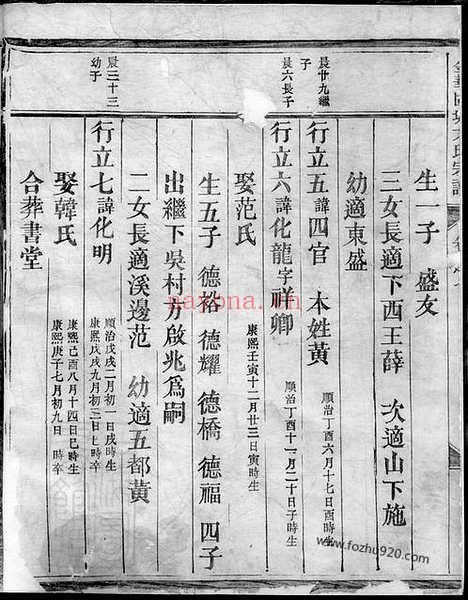 生一子　盛友
三女長適下西王薛　次適山下施
幼適東盛
晨廿九繼子
行立五諱四官　本姓黃　順治丁酉六月十七日酉時生
晨六長子
行立六諱化龍字祥卿　順治丁酉十一月二十日子時生
娶范氏　康熙壬寅十二月廿三日寅時生
生五子　德裕　德耀　德橋　德福　四子
出繼下吳村方啟兆為嗣
二女長適溪邊范　幼適五都黃
晨三十三幼子
行立七諱化明　順治戊戌二月初一日戌時生
康熙戊戌九月初三日巳時卒
娶韓氏　康熙己酉八月十四日巳時生
康熙庚子七月初九日　時卒
合葬書堂
naxona.com
www.fozhu920.com